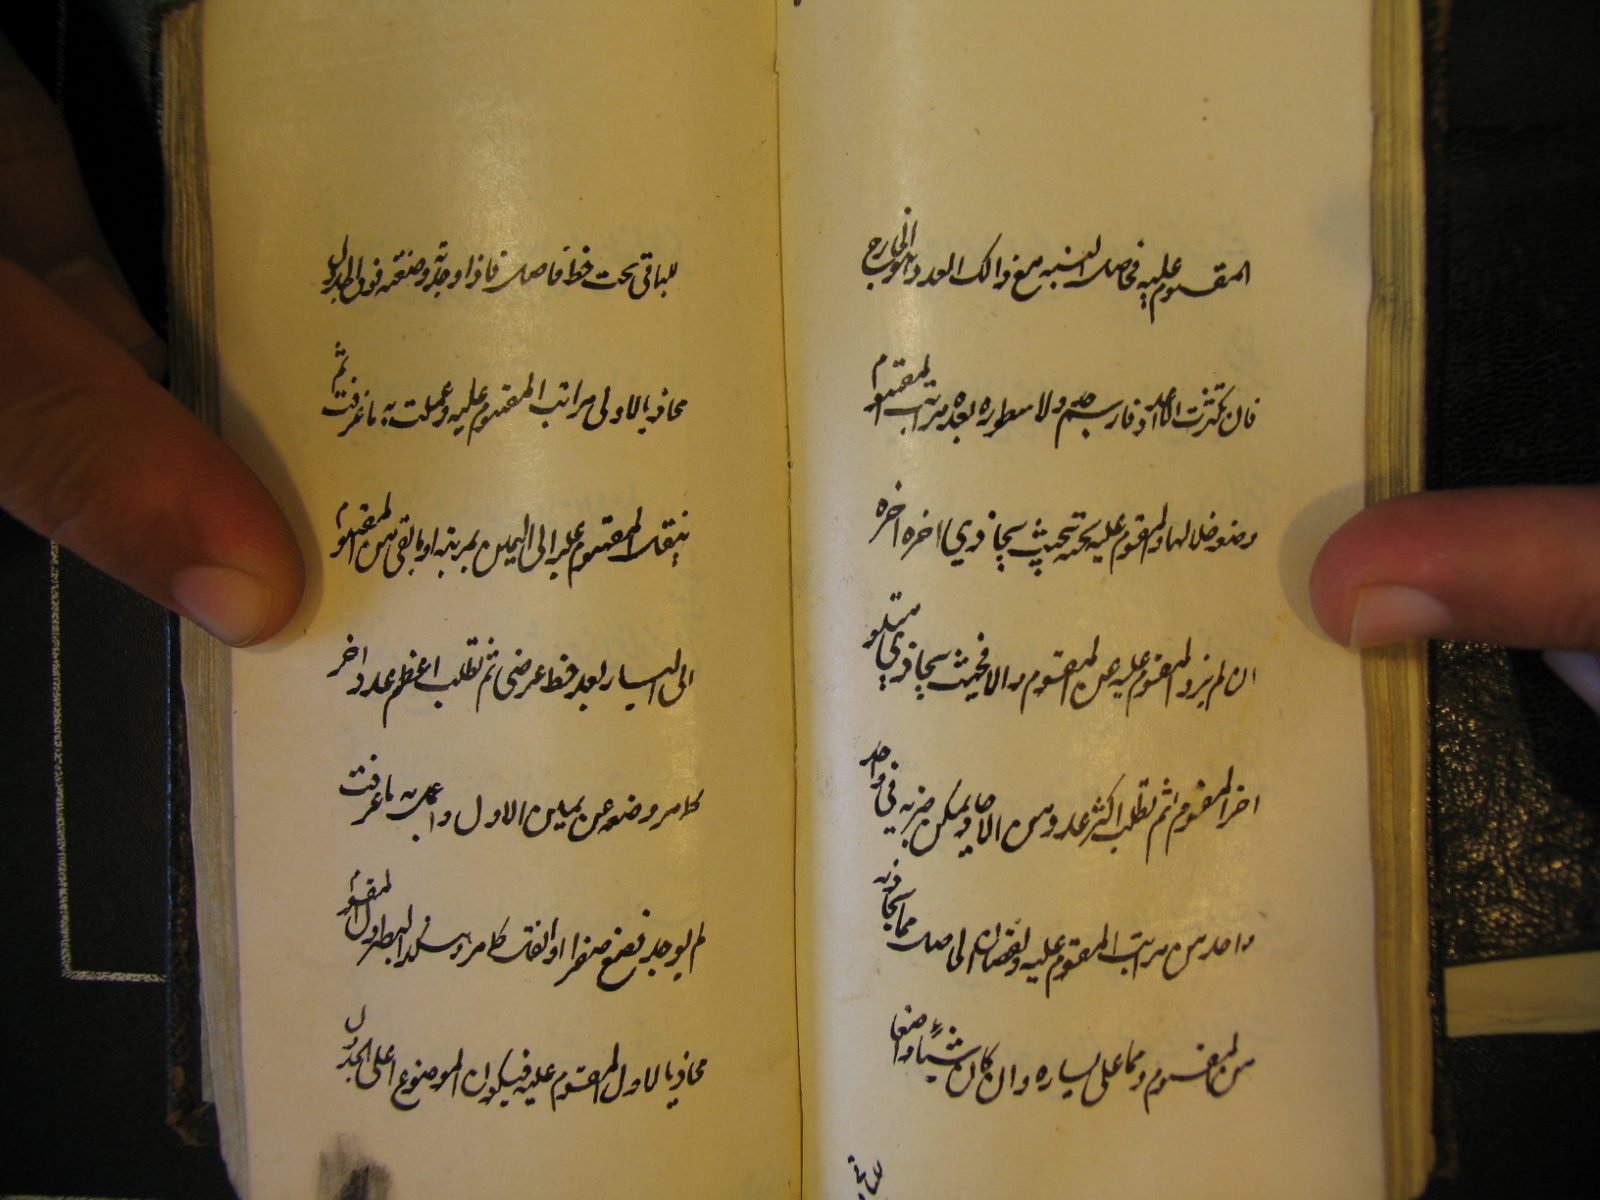 المقسوم عليه فحاصل النسبه مع ذالك العدد هو الخارج
فان تكثرت الاعداد فارسم جدولا سطوره بعده مراتب المقسوم
وضعه خلالها والمقسوم عليه تحته بحيث يحاذي اخره اخره
ان لم يزد المقسوم عليه عن المقسوم والا فبحيث يحاذي متلو
اخر المقسوم ثم تطلب اكثر عدد من الاحاد يمكن ضربه في واحد
واحد من مراتب المقسوم عليه ونقصان الحاصل مما يحاذيه
من المقسوم ومما على يساره وان كان شيئا واضعا
للباقي
للباقي تحت خط فاصل فاذا وجدته وضعته فوق الجدول
محاذيا لاولى مراتب المقسوم عليه وعملت به ما عرفت ثم
ينقل المقسوم عليه الى اليمين بمرتبه او ما بقى من المقسوم
الى اليسار بعد خط عرضي ثم تطلب اعظم عدد اخر
كما مر وضعه عن يمين الاول واعمل به ما عرفت
لم يوجد فضع صفرا وانقل كما مر المقسوم
محاذيا لاول المقسوم عليه فيكون الموضوع اعلى الجدول